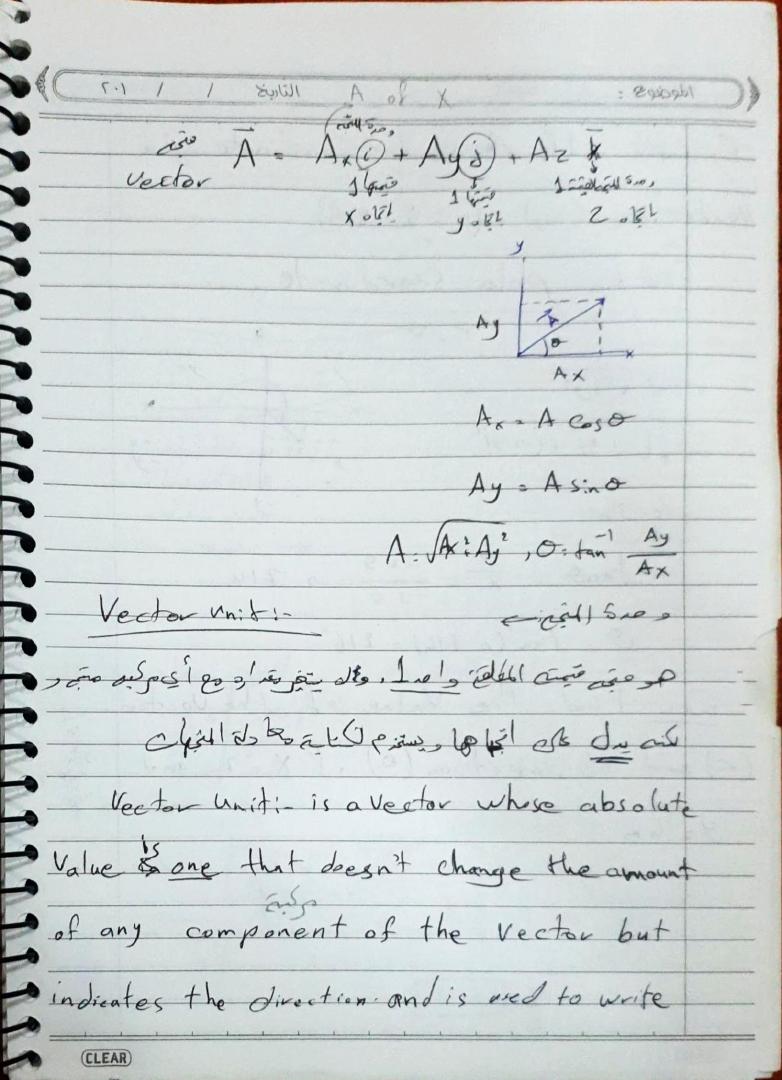 الموضوع : A of X التاريخ / / ٢٠١
وحدة المتجه
متجه A = Ax i + Ay j + Az k
vector قيمتها 1 قيمتها 1 وحدة المتجه قيمتها 1
باتجاه x باتجاه y باتجاه z
y
Ay A θ x
Ax
Ax = A cosθ
Ay = A sinθ
A = √Ax² + Ay² , θ = tan⁻¹ Ay / Ax
Vector unit:- وحدة المتجه
هو متجه قيمته المطلقة واحد 1 ، ولا يتغير مقدار مع أي مركبه متجه و
لكنه يدل على اتجاهها ويستخدم لكتابة معادلة المتجهات
Vector Unit:- is a vector whose absolute
Value is one that doesn't change the amount
مركبة
of any component of the vector but
indicates the direction and is used to write
CLEAR